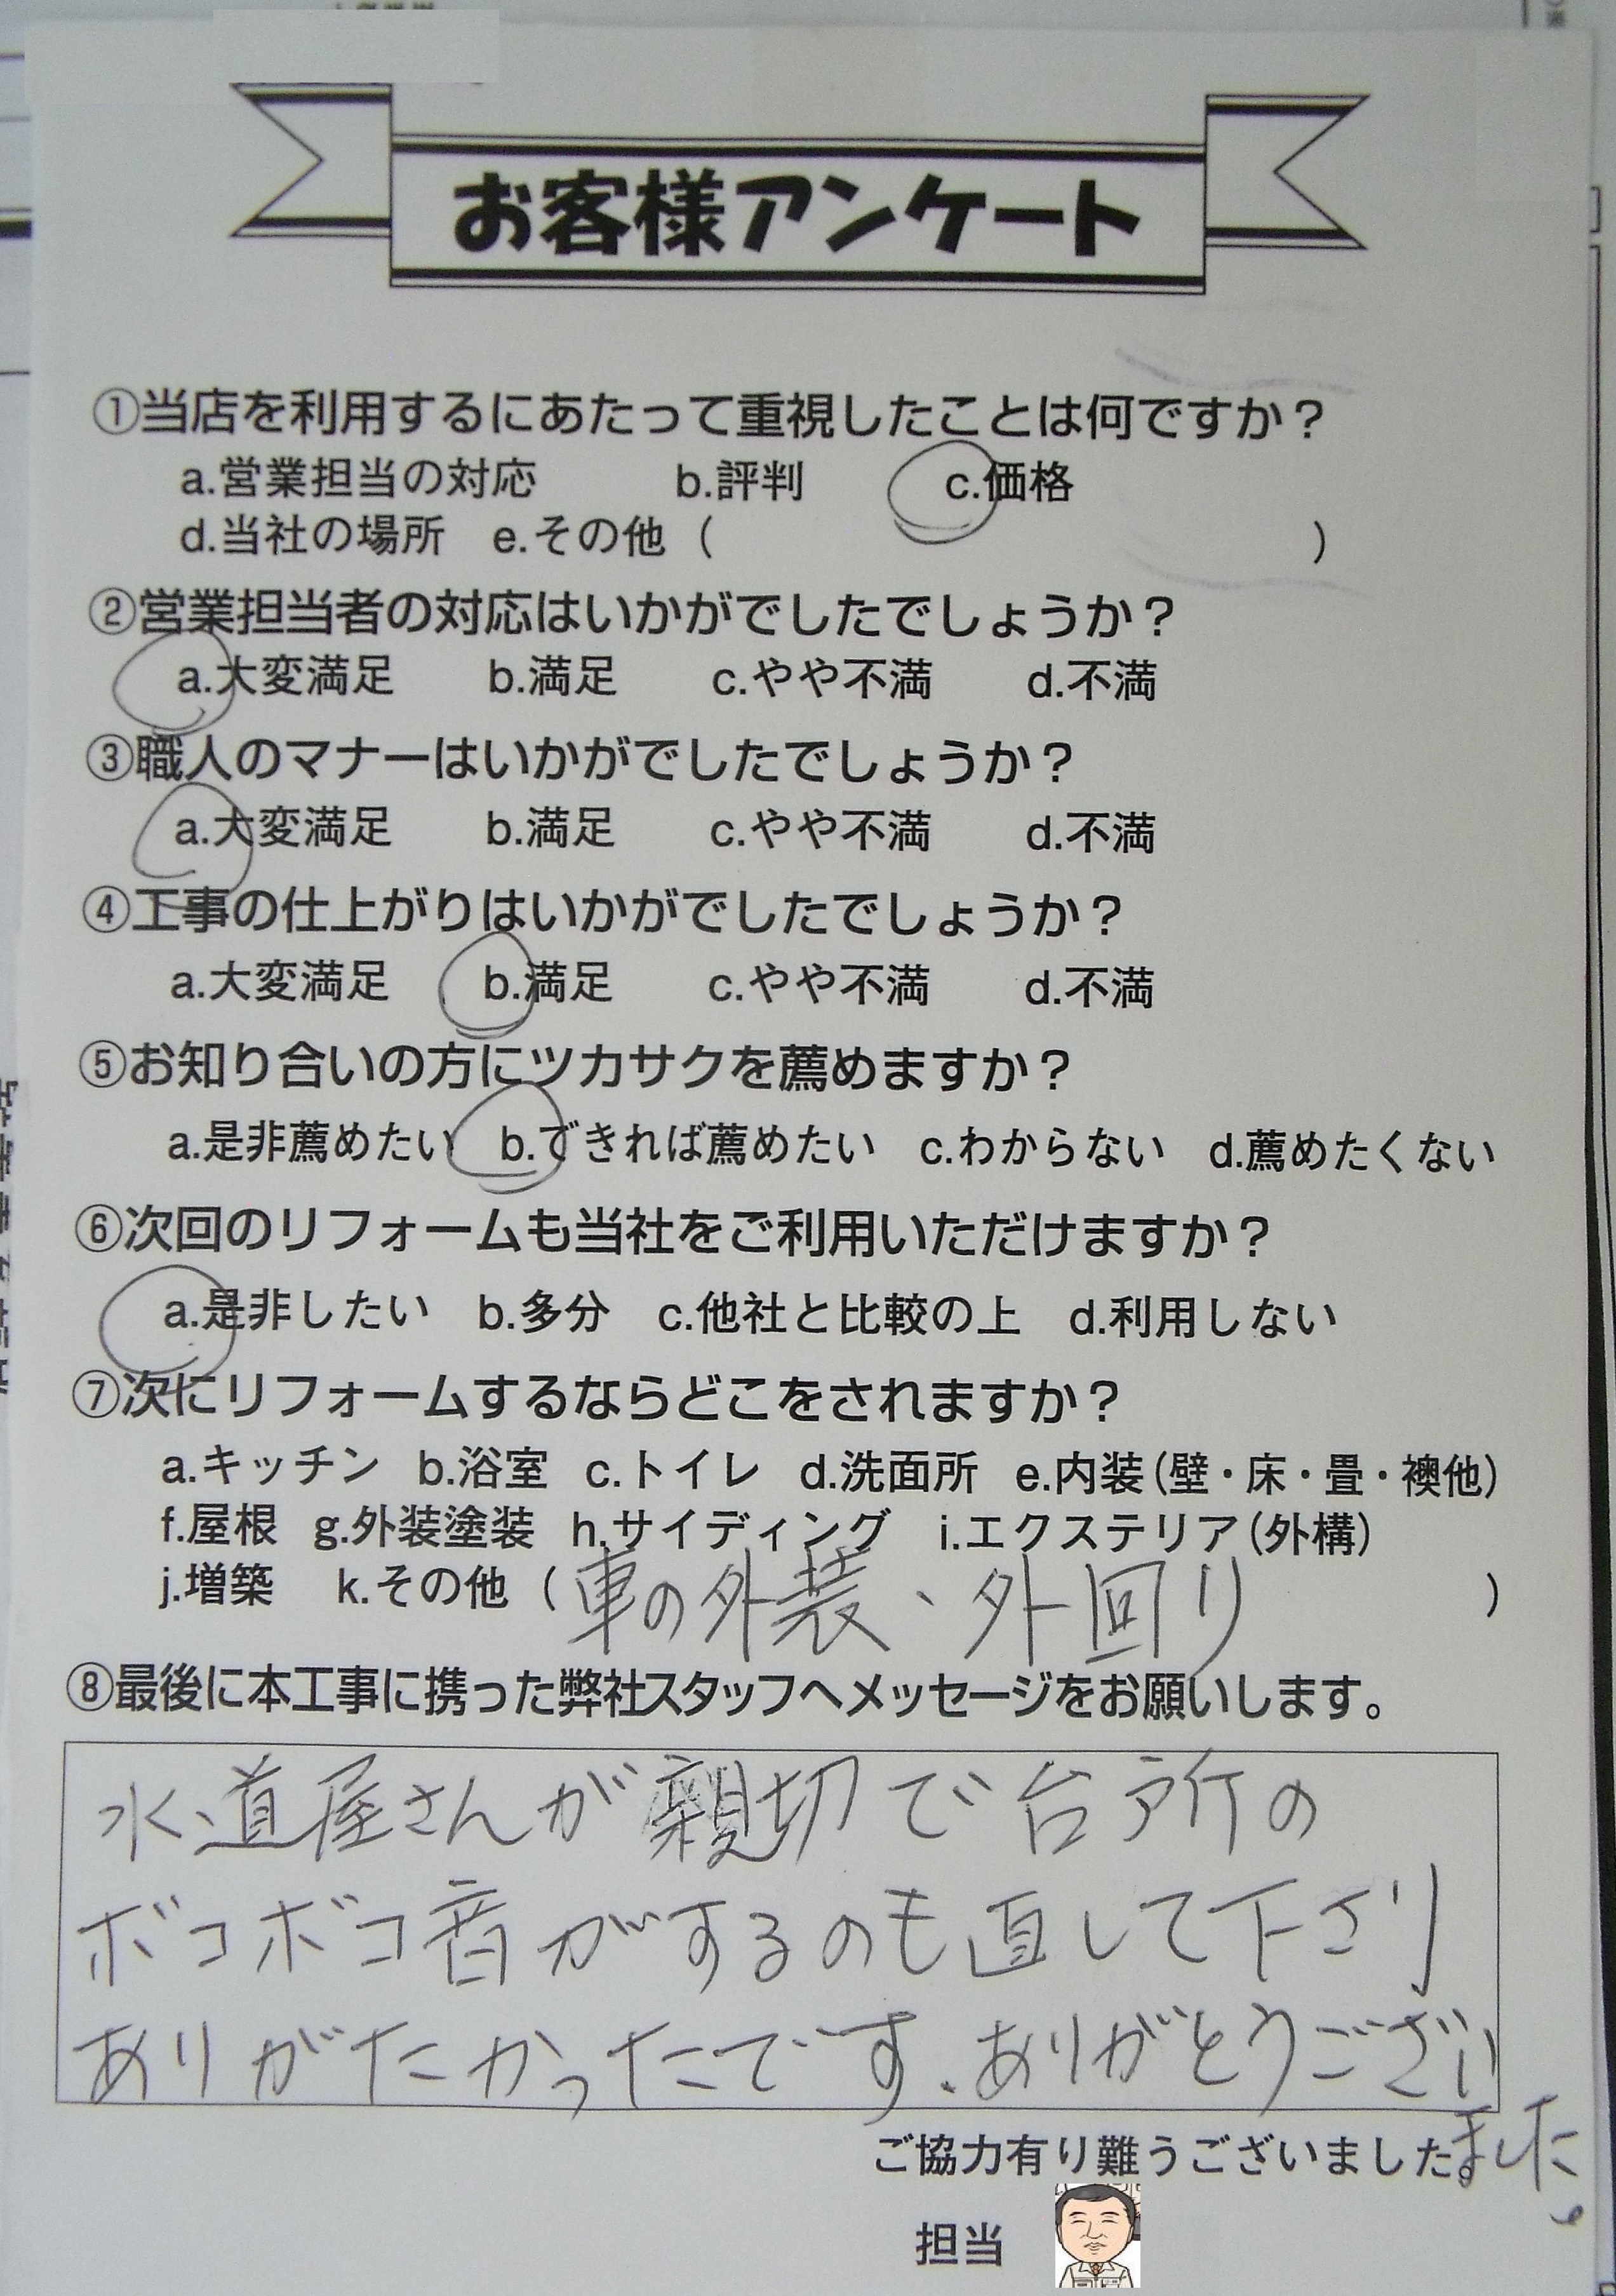 お客様アンケート
①当店を利用するにあたって重視したことは何ですか？
a.営業担当の対応 b.評判 c.価格
d.当社の場所 e.その他（ ）
②営業担当者の対応はいかがでしたでしょうか？
a.大変満足 b.満足 c.やや不満 d.不満
③職人のマナーはいかがでしたでしょうか？
a.大変満足 b.満足 c.やや不満 d.不満
④工事の仕上がりはいかがでしたでしょうか？
a.大変満足 b.満足 c.やや不満 d.不満
⑤お知り合いの方にツカサクを薦めますか？
a.是非薦めたい b.できれば薦めたい c.わからない d.薦めたくない
⑥次回のリフォームも当社をご利用いただけますか？
a.是非したい b.多分 c.他社と比較の上 d.利用しない
⑦次にリフォームするならどこをされますか？
a.キッチン b.浴室 c.トイレ d.洗面所 e.内装（壁・床・畳・襖他）
f.屋根 g.外装塗装 h.サイディング i.エクステリア（外構）
j.増築 k.その他（車の外装、外回り）
⑧最後に本工事に携った弊社スタッフへメッセージをお願いします。
水道屋さんが親切で台所の
ボコボコ音がするのも直して下さり
ありがたかったです。ありがとうござい
ました。
ご協力有り難うございました。
担当